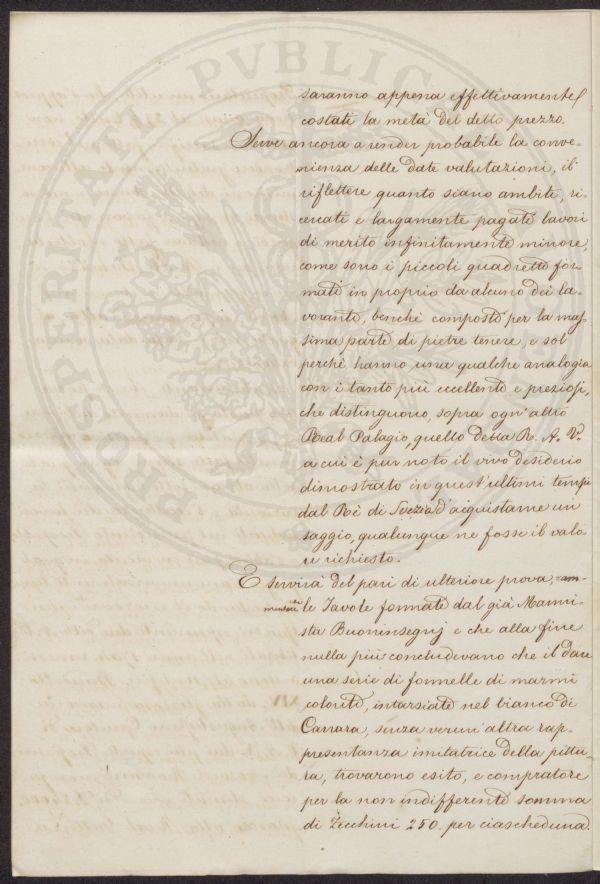 PROSPERITATI PVBLICAE
saranno appena effettivamente
costati la metà del detto prezzo.
Serve ancora a render probabile la conve-
nienza delle date valutazioni, il
riflettere quanto siano ambiti, ri-
cercati e largamente pagati lavori
di merito infinitamente minore,
come sono i piccoli quadretti for-
mati in proprio da alcuno dei la-
voranti, benchè composti per la mas-
sima parte di pietre tenere, e sol
perchè hanno una qualche analogia
con i tanto più eccellenti e preziosi,
che distinguono, sopra ogn'altro
Real Palagio, quello della R. A. V.
a cui è pur noto il vivo desiderio
dimostrato in quest'ultimi tempi
dal Rè di Svezia d'acquistarne un
saggio, qualunque ne fosse il valo
re richiesto.
E servirà del pari di ulteriore prova,
le Tavole formate dal già Marmi-
sta Buoninsegnj e che alla fine
nulla più concludevano che il dare
una serie di formelle di marmi
coloriti, intarsiate nel bianco di
Carrara, senza verun'altra rap-
presentanza imitatrice della pittu-
ra, trovarono esito, e compratore
per la non indifferente somma
di Zecchini 250. per ciascheduna.